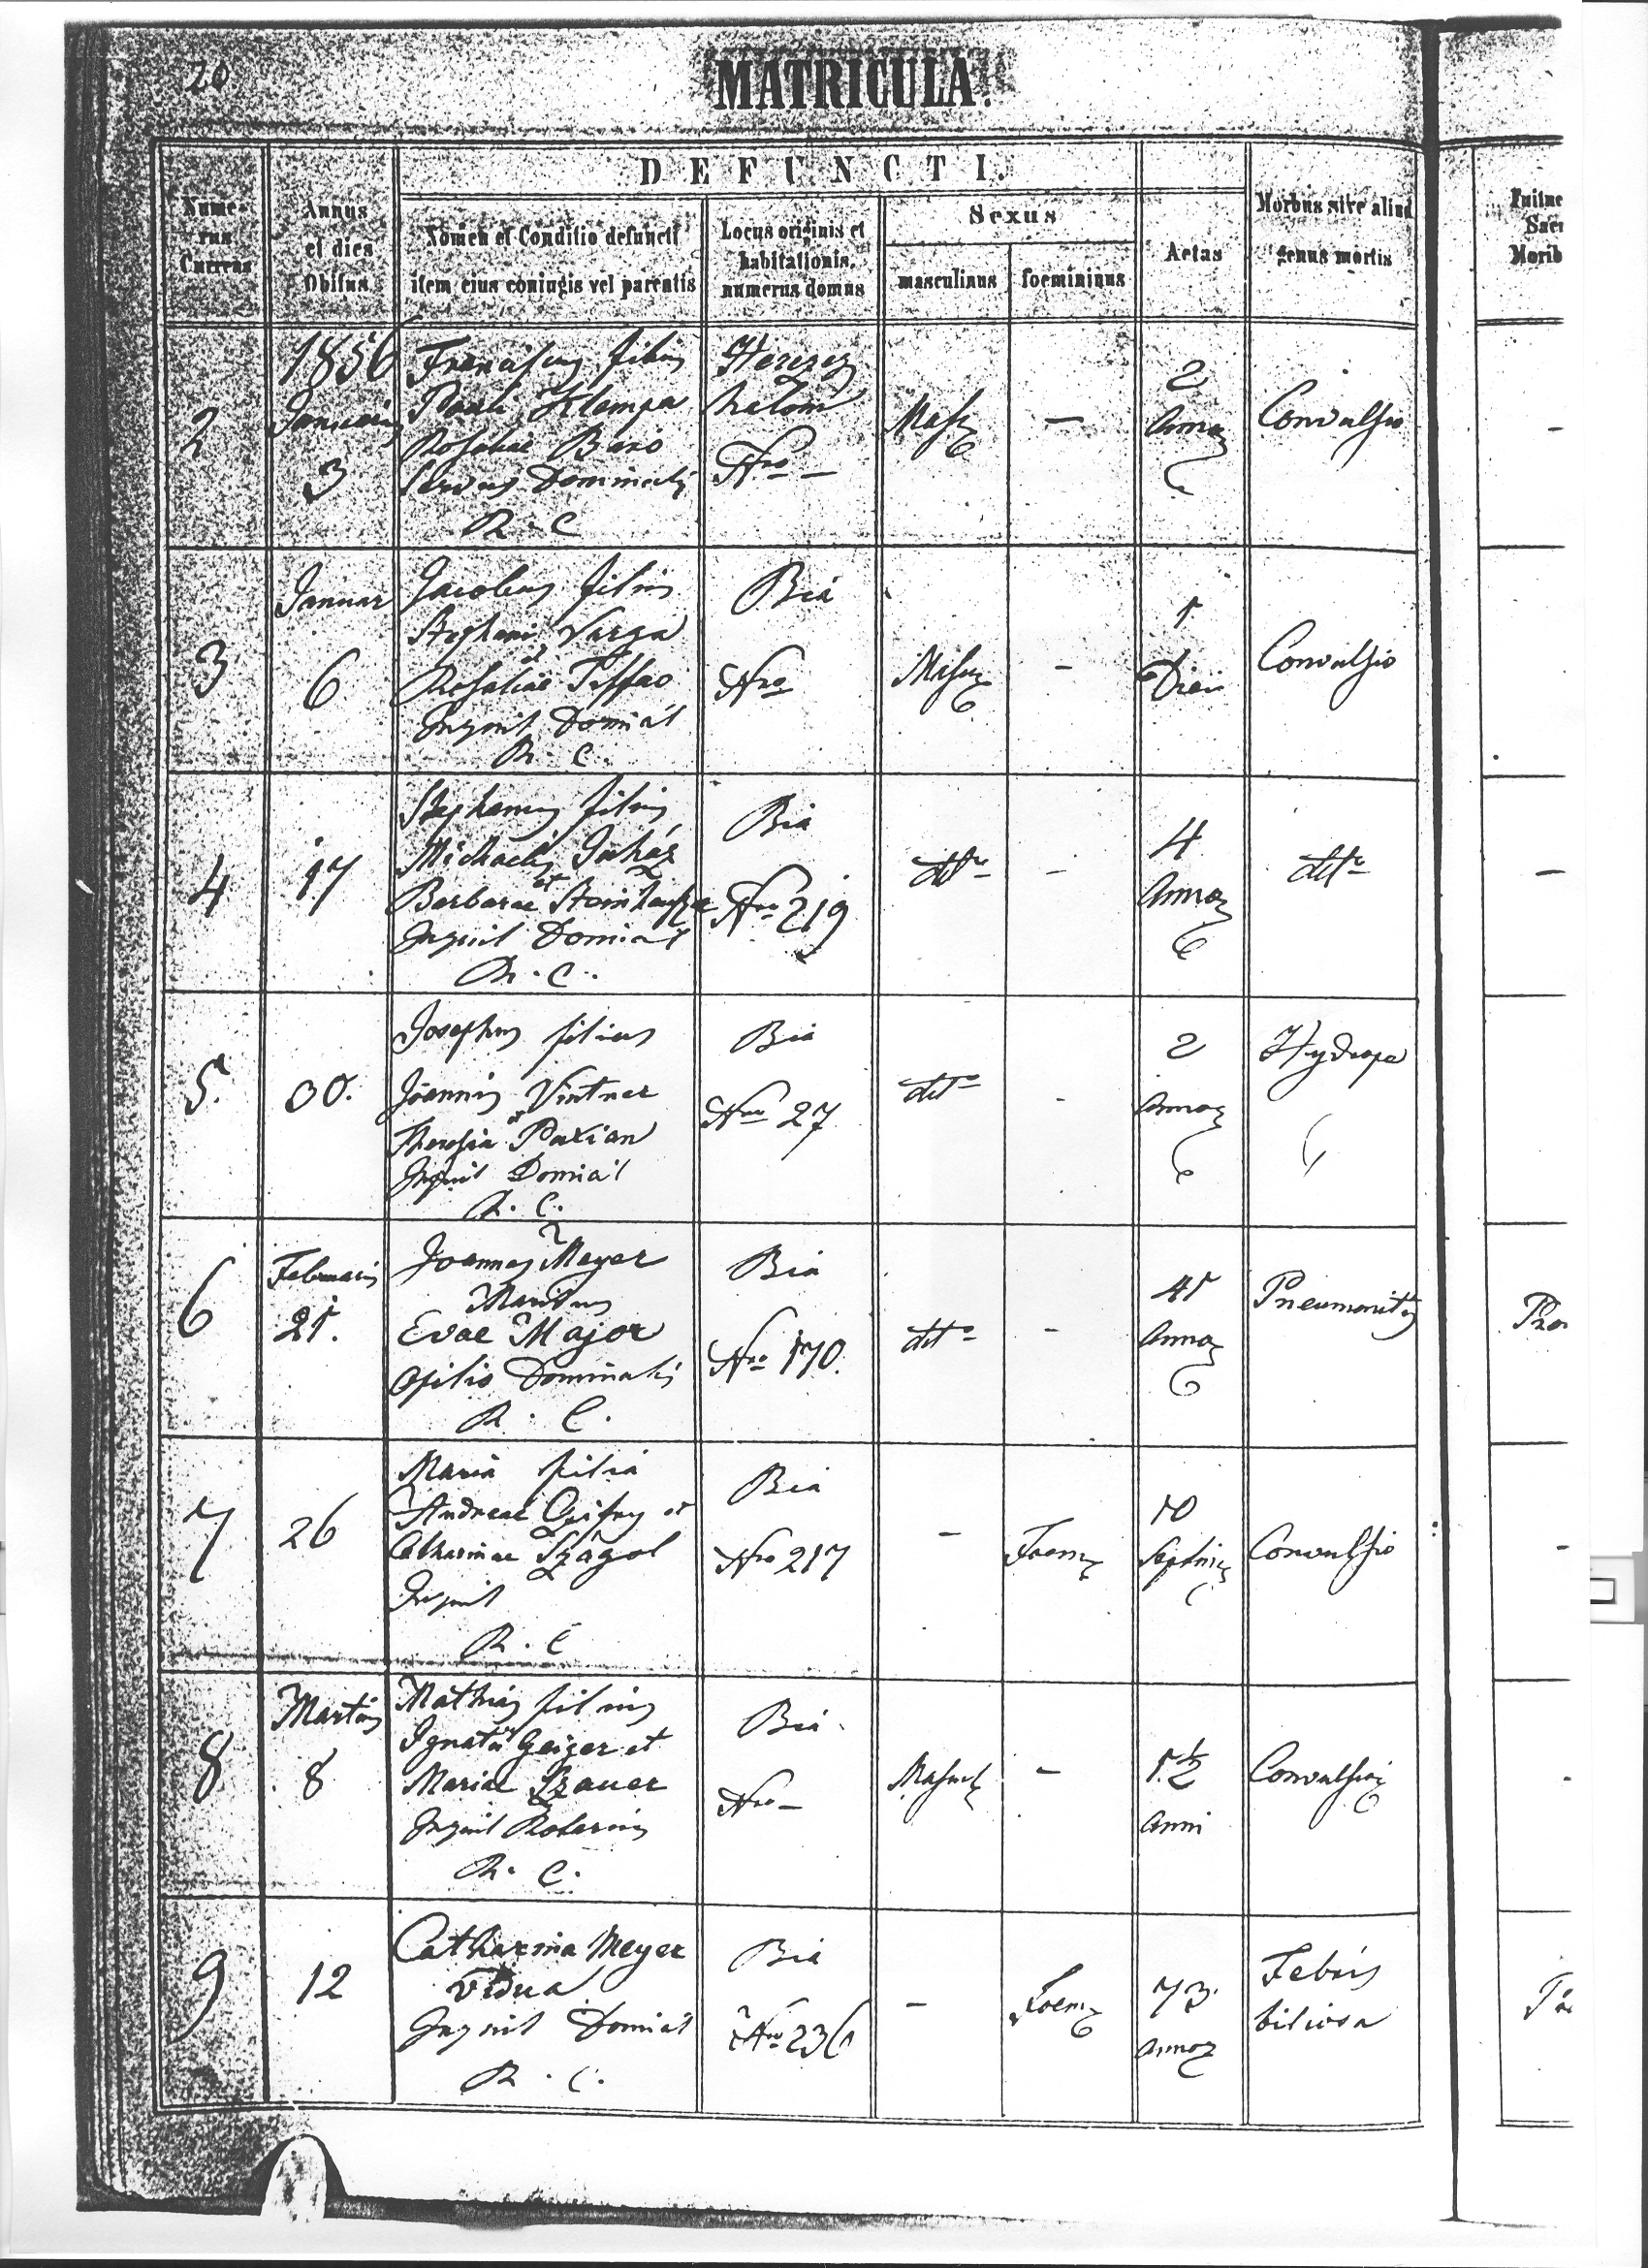 20
MATRICULA.
DEFUNCTI.
Nume-
rus
Currens
Annus
et dies
Obitus
Nomen et Conditio defuncti
item eius coniugis vel parentis
Locus originis et
habitationis,
numerus domus
Sexus
masculinus
foemininus
Aetas
Morbus sive aliud
genus mortis
2
1856
Januarii
3
Franciscus filius
Pauli Klempa
Rosaliae Baró
Servus Dominalis
R. C
Nro —
Masc
—
2
Annor
Convulsio
3
Januar
6
Jacobus filius
Stephani Varga
et
Rosaliae
Inquil Domial
R. C.
Bia
Nro
Masc
-
1
Diei
Convulsio
4
17
Stephanus filius
Michaelis Juház
et
Barbarae
Inquil Domial
R. C.
Bia
Nro 219
dtto
-
4
Annor
dtto
5.
30.
Josephus filius
Joannis Vintner
et
Theresia Paxian
Inquil Domial
R. C.
Bia
Nro 27
dtto
-
2
Annor
Hydrops
6
Februarii
21.
Joannes Meyer
Maritus
Evae Major
Opilio Dominalis
R. C.
Bia
Nro 170.
dtto
-
41
Annor
Pneumonitis
7
26
Maria filia
Andreae et
Catharinae Szágol
Inquil
R. C
Bia
Nro 217
-
Foem
10
Septim
Convulsio
8
Martii
8
Mathias filius
Ignatii Geiger et
Mariae Szauer
Inquil
R. C.
Bia
Nro —
Mascul
-
1.½
Anni
9
12
Catharina Meyer
Vidua
Inquil Domial
R. C.
Bia
Nro 236
-
Foem
73.
Annor
Febris
biliosa